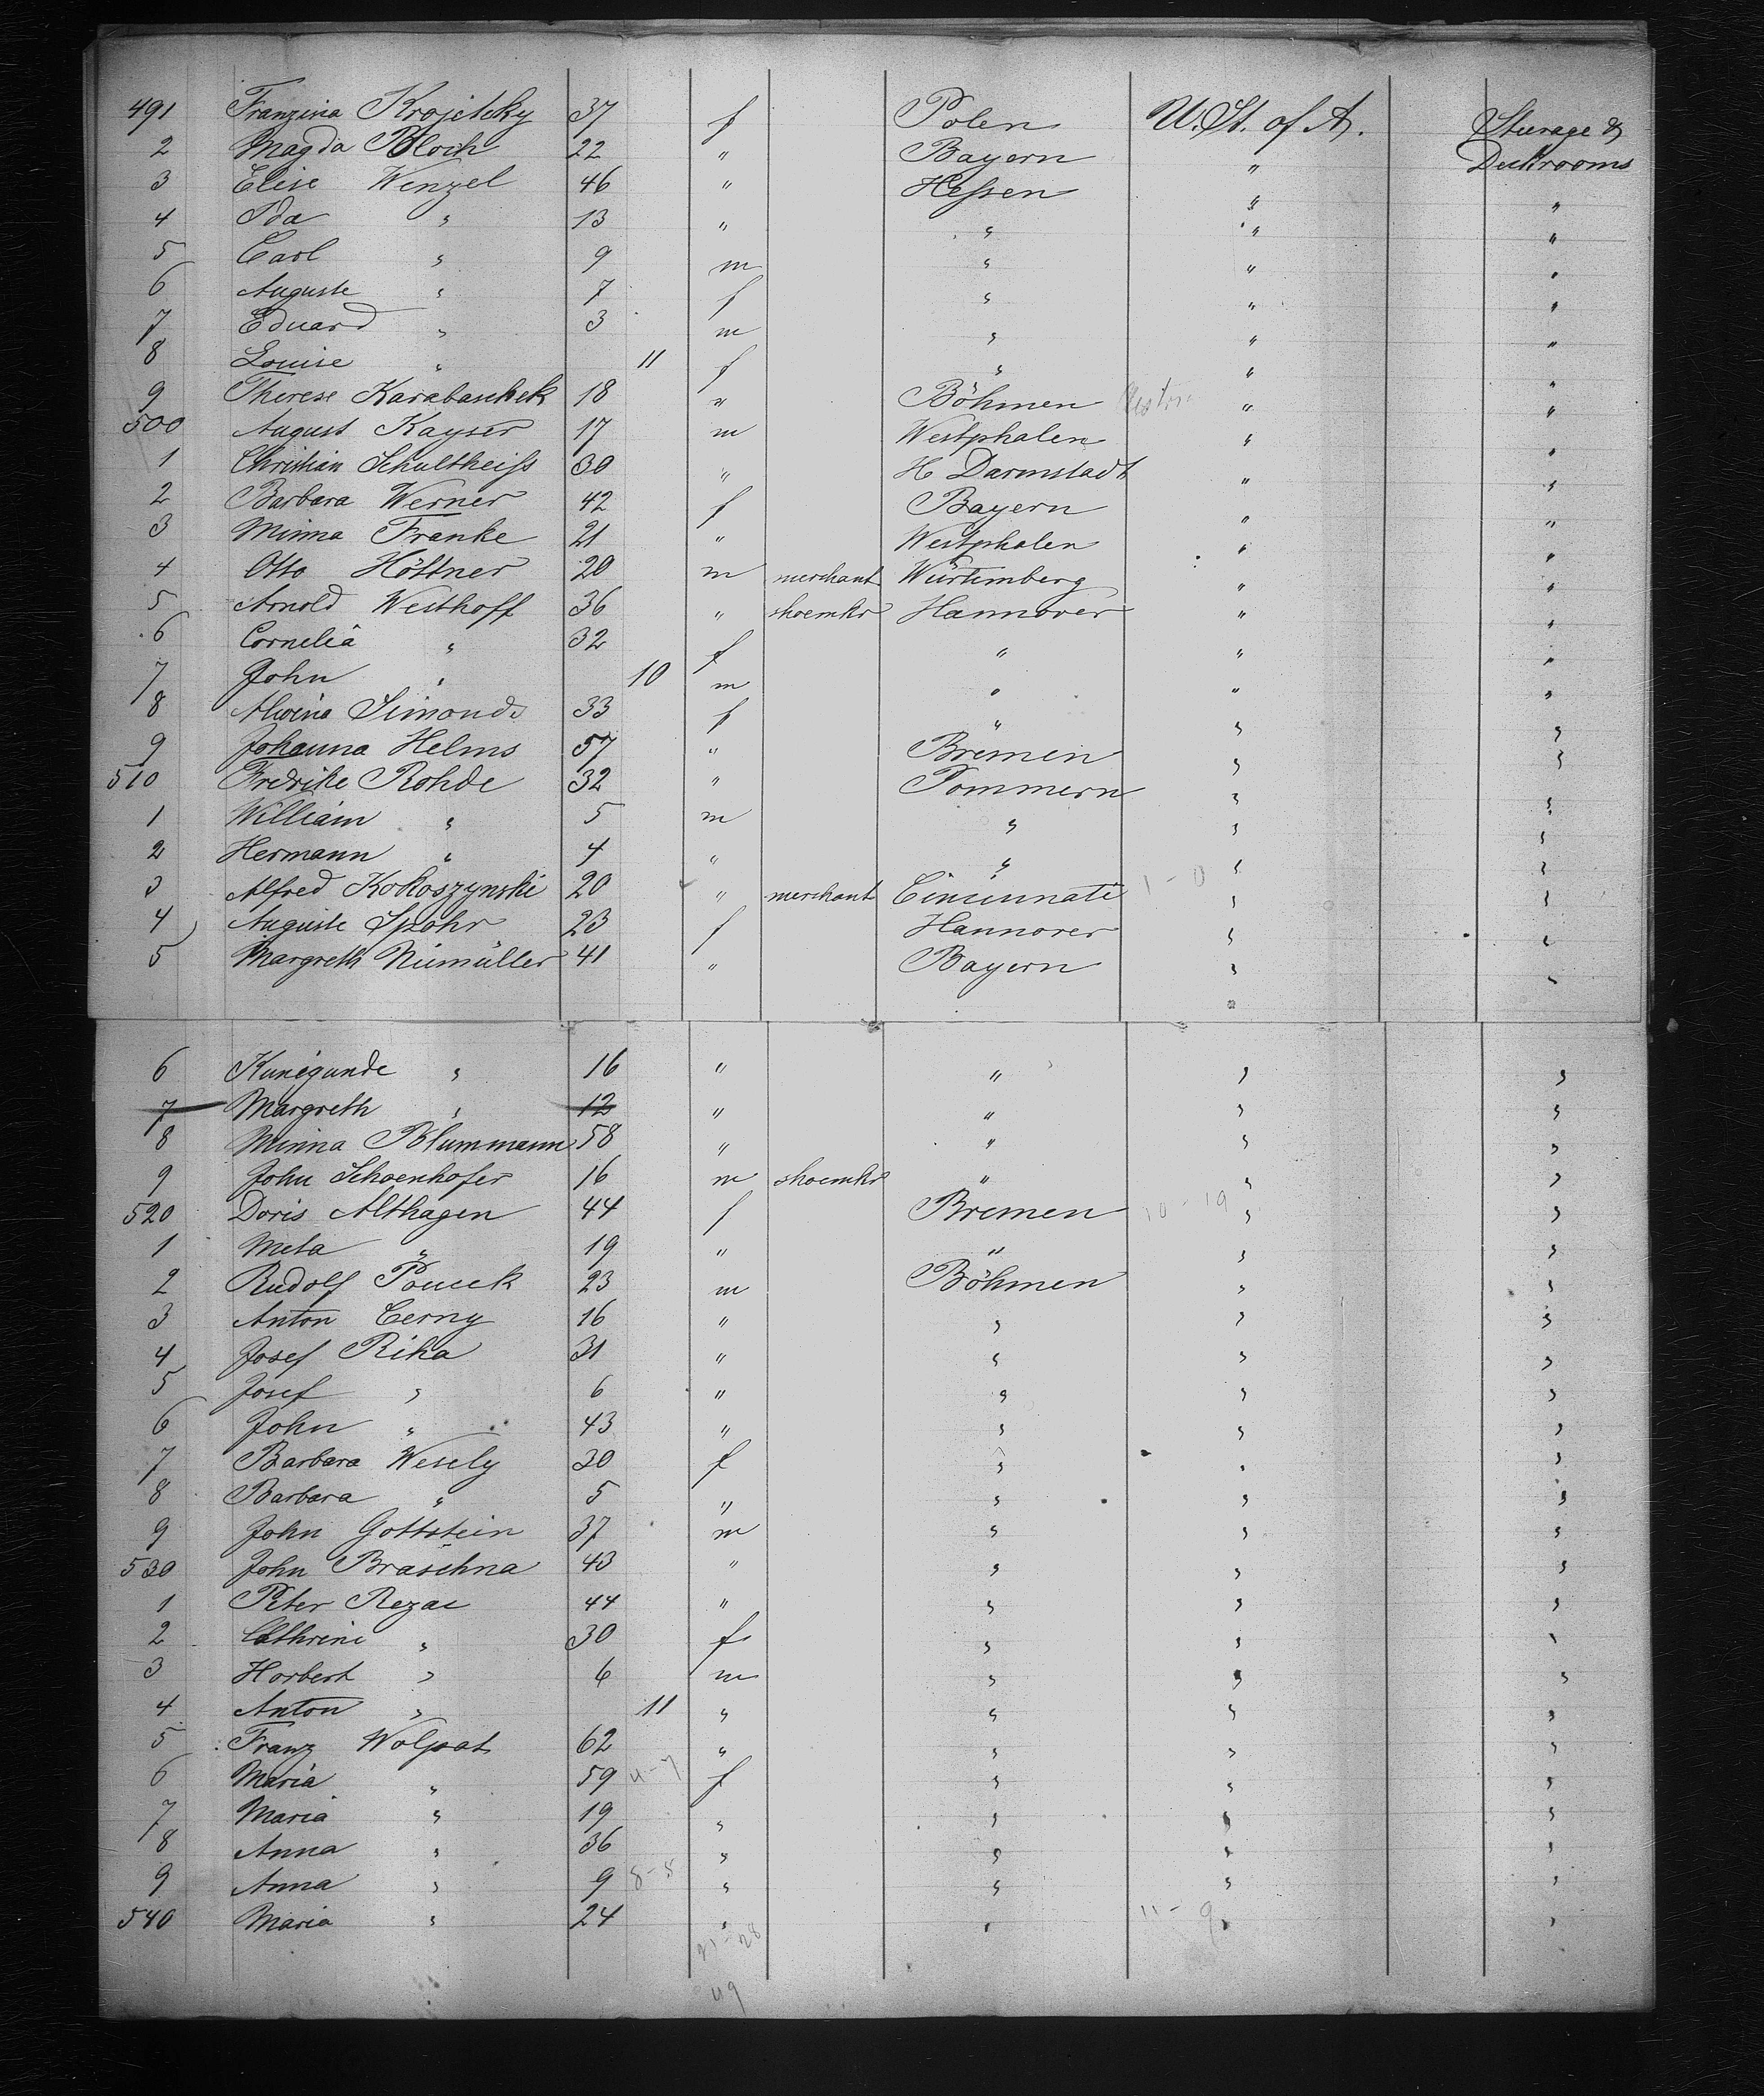 491 Franzina Krojetsky 37 f Polen U. St. of A. Steerage &
2 Magda Bloch 22 " Bayern " Deckrooms
3 Elise Wenzel 46 " Hessen " "
4 Ida " 13 " " " "
5 Carl " 9 m " " "
6 Auguste " 7 f " " "
7 Eduard " 3 m " " "
8 Louise " 11 f " " "
9 Therese Karabaschek 18 " Böhmen " "
500 August Kayser 17 m Westphalen " "
1 Christian Schultheiss 30 " H Darmstadt " "
2 Barbara Werner 42 f Bayern " "
3 Minna Franke 21 " Westphalen " "
4 Otto Höttner 20 m merchant Würtemberg " "
5 Arnold Westhoff 36 " shoemkr Hannover " "
6 Cornelia " 32 f " " "
7 John " 10 m " " "
8 Alwina Simonds 33 f " " "
9 Johanna Helms 57 " Bremen " "
510 Fredrike Rohde 32 " Pommern " "
1 William " 5 m " " "
2 Hermann " 4 " " " "
3 Alfred Kokoszynski 20 " merchant Cincinnati 1-0 " "
4 Auguste Spohr 23 f Hannover " "
5 Margreth Niemüller 41 " Bayern " "
6 Kunigunde " 16 " " " "
7 Margreth " 12 " " " "
8 Minna Blummann 58 " " " "
9 John Schoenhofer 16 m shoemkr " " "
520 Doris Althagen 44 f Bremen 10-19 " "
1 Meta " 19 " " " "
2 Rudolf 23 m Böhmen " "
3 Anton Cerny 16 " " " "
4 Josef Rika 31 " " " "
5 Josef " 6 " " " "
6 John " 43 " " " "
7 Barbara Wesely 30 f " " "
8 Barbara " 5 " " " "
9 John Gottstein 37 m " " "
530 John Braschna 43 " " " "
1 Peter Rezac 44 " " " "
2 Cathrine " 30 f " " "
3 Horbert " 6 m " " "
4 Anton " 11 " " " "
5 Franz Wolpat 62 " " " "
6 Maria " 59 f " " "
7 Maria " 19 " " " "
8 Anna " 36 " " " "
9 Anna " 9 8-5 " " " "
540 Maria " 24 " " 11-9 " "
21-28
49